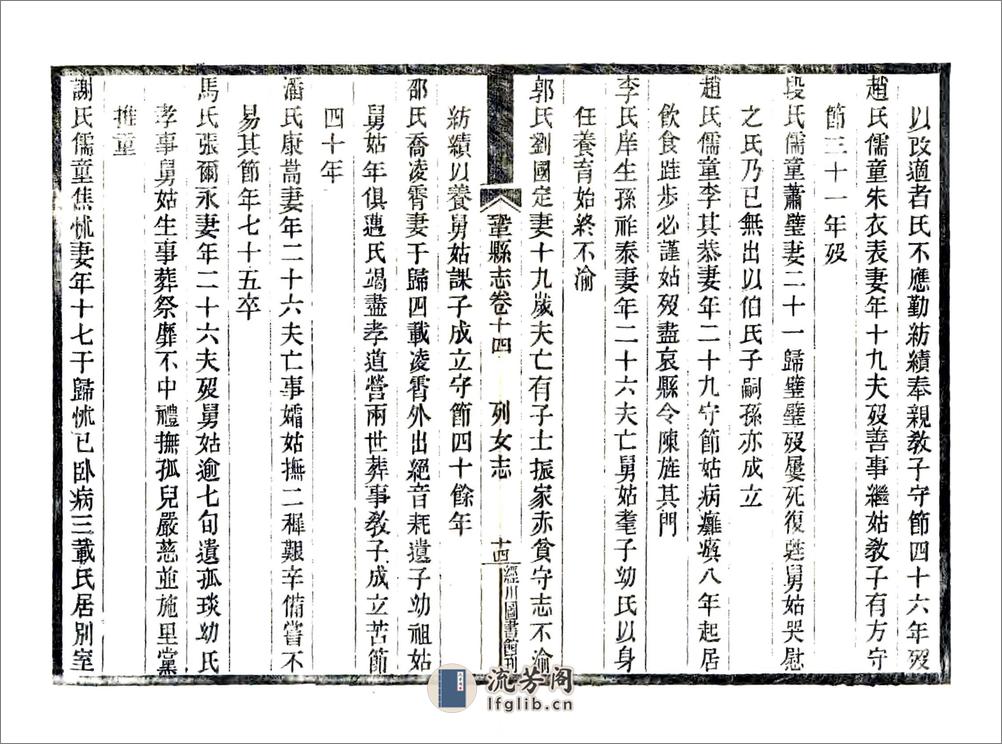 以改適者氏不應勤紡績奉親教子守節四十六年歿
趙氏儒童朱衣表妻年十九夫歿善事繼姑教子有方守
節三十一年歿
段氏儒童蕭璧妻二十一歸璧璧歿屢死復甦舅姑哭慰
之氏乃已無出以伯氏子嗣孫亦成立
趙氏儒童李其恭妻年二十九守節姑病癱瘓八年起居
飲食跬步必謹姑歿盡哀縣令陳旌其門
李氏庠生孫祚泰妻年二十六夫亡舅姑耄子幼氏以身
任養育始終不渝
郭氏劉國定妻十九歲夫亡有子士振家赤貧守志不渝
鞏縣志卷十四 列女志 十四 經川圖書館刊
紡績以養舅姑課子成立守節四十餘年
邵氏喬凌霄妻于歸四載凌霄外出絕音耗遺子幼祖姑
舅姑年俱邁氏竭盡孝道營兩世葬事教子成立苦節
四十年
潘氏康嵩妻年二十六夫亡事孀姑撫二穉艱辛備嘗不
易其節年七十五卒
馬氏張爾永妻年二十六夫歿舅姑逾七旬遺孤琰幼氏
孝事舅姑生事葬祭靡不中禮撫孤兒嚴慈並施里黨
推重
謝氏儒童焦怵妻年十七于歸怵已臥病三載氏居別室
流芳阁
lfglib.cn